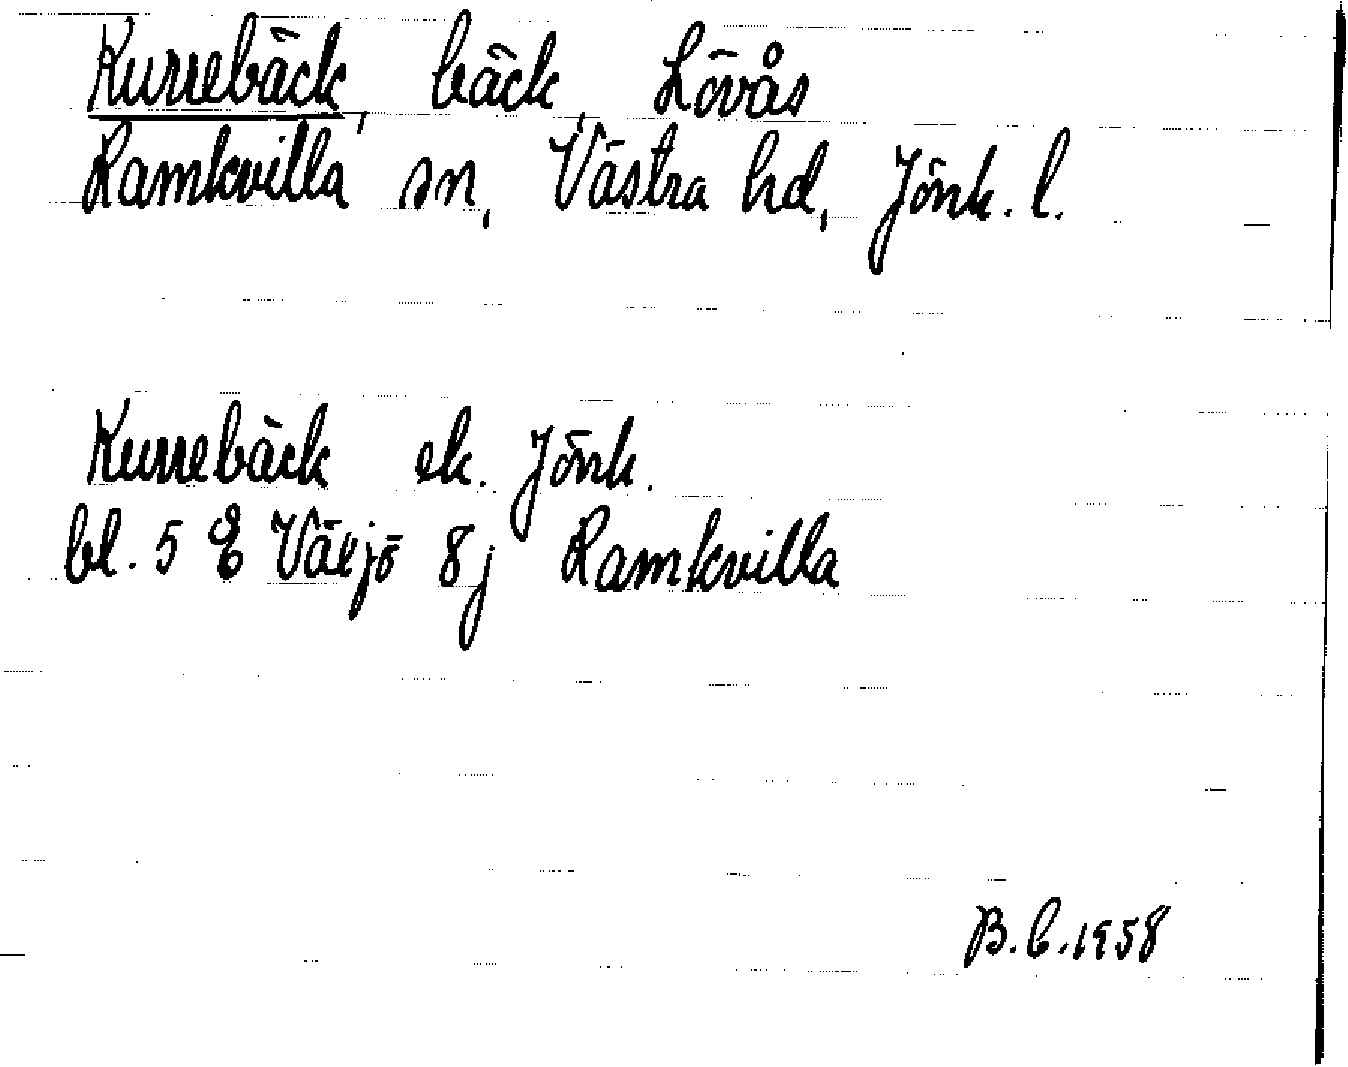 Kurrebäck, bäck, Lövås
Ramkvilla sn, Västra hd, Jönk. l.
Kurrebäck ek. Jönk.
bl. 5 E Växjö 8j Ramkvilla
B.C.1958